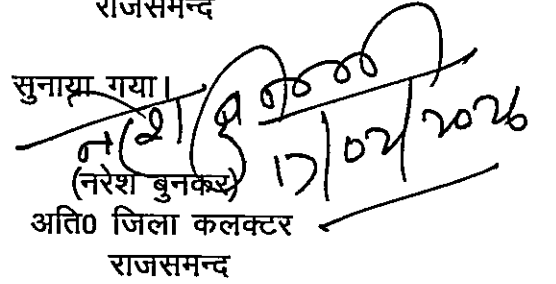 राजसमन्द
सुनाया गया।
(नरेश बुनकर)
अति0 जिला कलक्टर
राजसमन्द